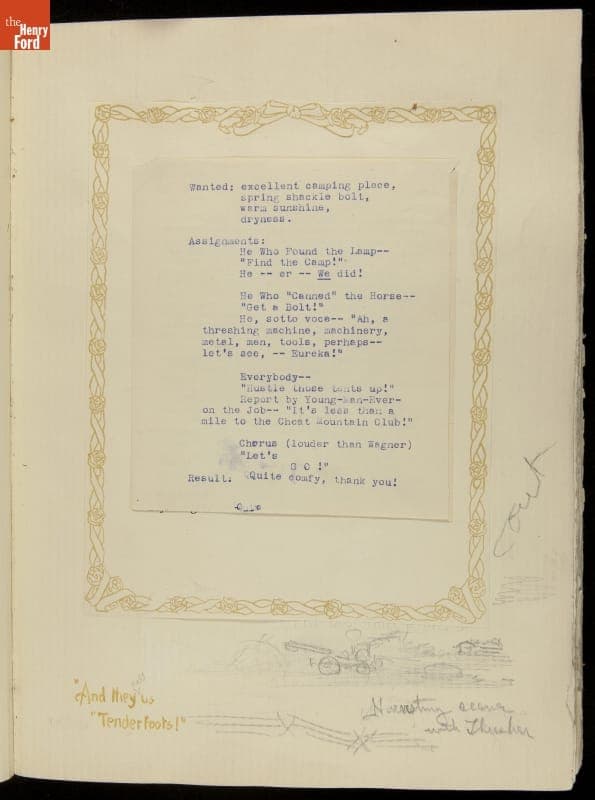 the
Henry
Ford
Wanted; excellent camping place,
spring shackle bolt,
warm sunshine,
dryness.
Assignments:
He Who Found the Lamp--
"Find the Camp!"
He -- er -- We did!
He Who "Canned" the Horse--
"Get a Bolt!"
He, sotto voce-- "Ah, a
threshing machine, machinery,
metal, men, tools, perhaps--
let's see, -- Eureka!"
Everybody--
"Hustle those tents up!"
Report by Young-Man-Ever-
on the Job-- "It's less than a
mile to the Cheat Mountain Club!"
Chorus (louder than Wagner)
"Let's
G O !"
Result. Quite comfy, thank you!
"And they us
"Tenderfoots!"
Harvesting scene
with Thrasher